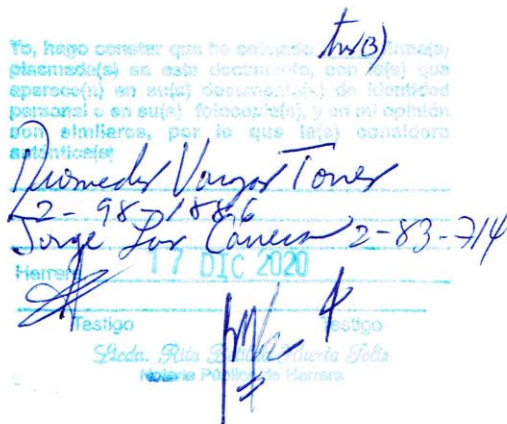 Yo, hago constar que he cotejado tres(3) firma(s)
plasmada(s) en este documento, con la(s) que
aparece(n) en su(s) documento(s) de identidad
personal o en su(s) fotocopia(s), y en mi opinión
son similares, por lo que la(s) considero
auténtica(s)
Diomedes Vargas Torres
2-98-1886
Jorge Luis 2-83-714
Herrera 17 DIC 2020
Testigo Testigo
Licda. Rita Huerta Solís
Notaria Pública de Herrera